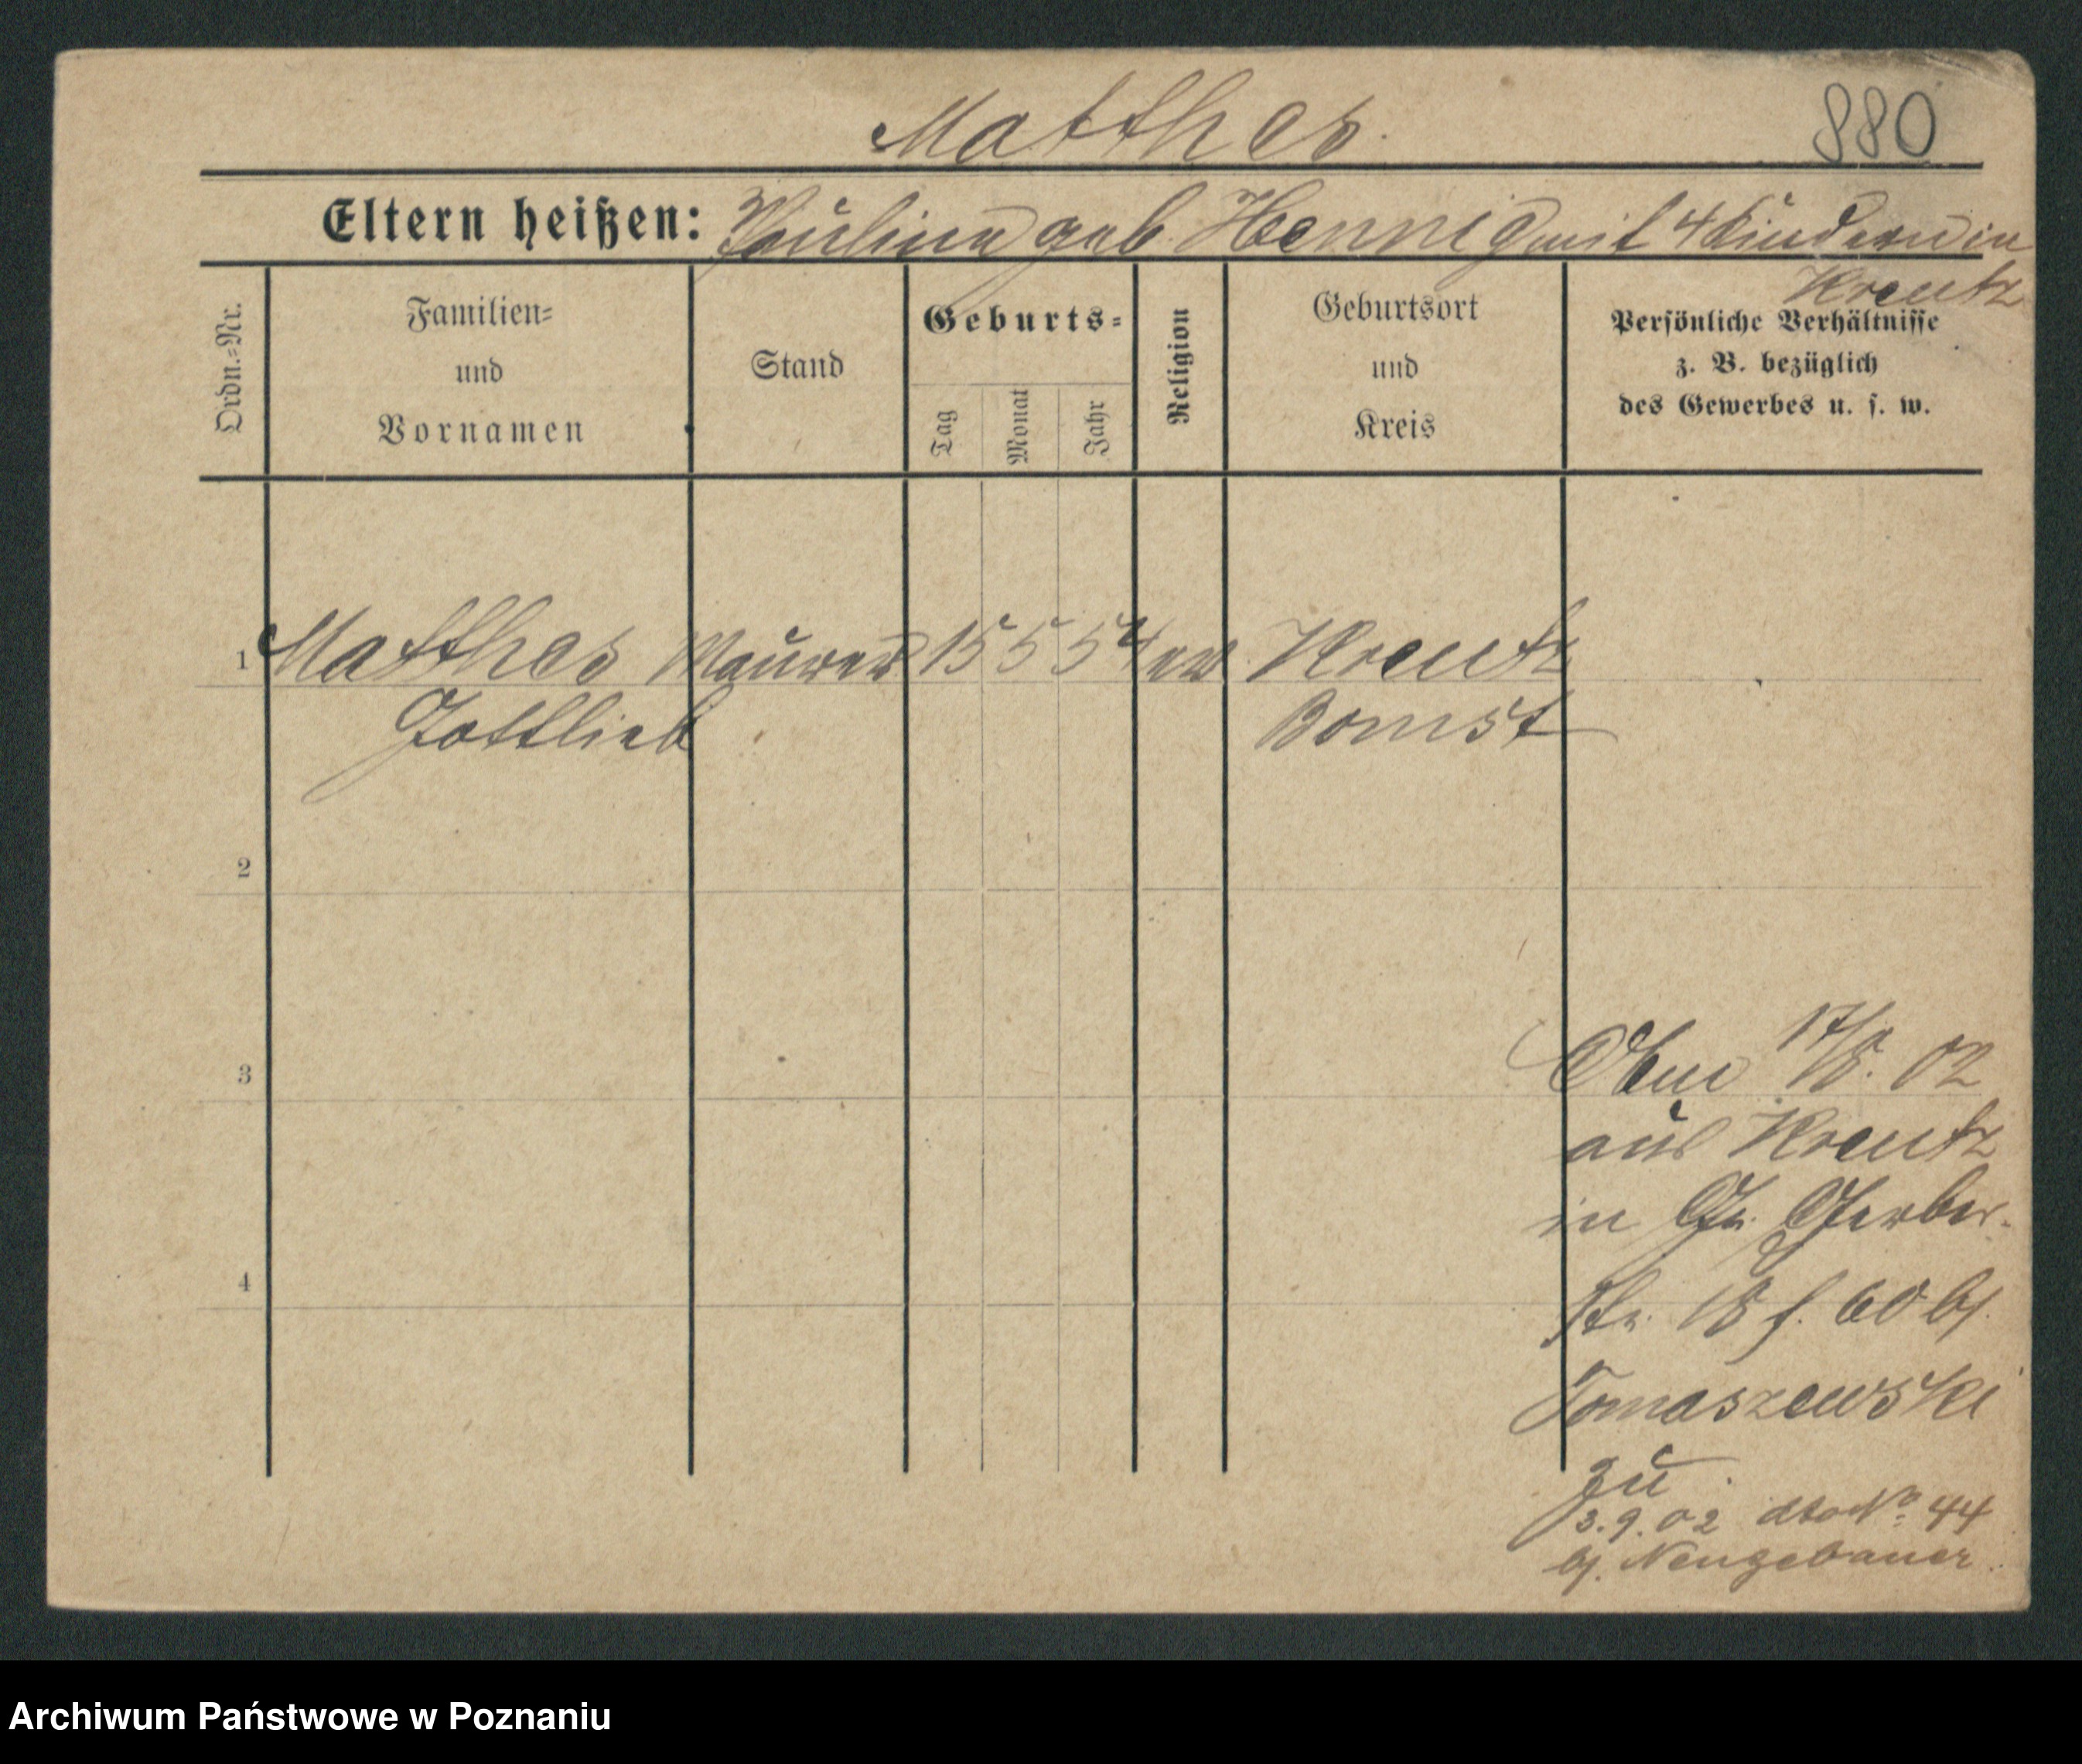 Matthes.
880
Eltern heißen: Pauline geb. Hennig mit 4 Kindern in
Kreutz
Ordn.-Nr.
Familien-
und
Vornamen
Stand
Geburts-
Tag
Monat
Jahr
Religion
Geburtsort
und
Kreis
Persönliche Verhältnisse
z. B. bezüglich
des Gewerbes u. s. w.
1 Matthes Maurer 15 5 54 ev Kreutz
Gottlieb Bomst
2
3
4
17/8. 02
aus Kreutz
in Gr. Gerber-
str. 18 f. 60 bj.
Tomaszewski
zu
3.9.02 dto No 44
bj. Neugebauer.
Archiwum Państwowe w Poznaniu